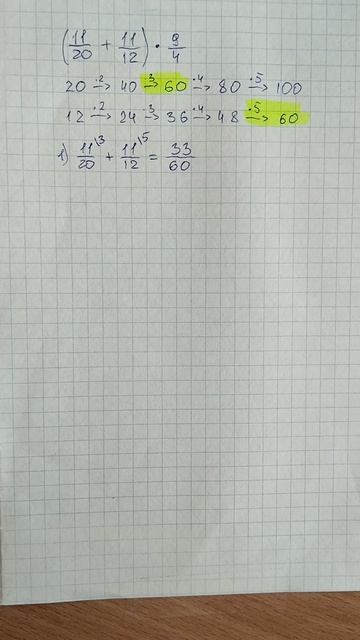 (11/20 + 11/12) · 9/4
20 ·2→ 40 ·3→ 60 ·4→ 80 ·5→ 100
12 ·2→ 24 ·3→ 36 ·4→ 48 ·5→ 60
1) 11\3/20 + 11\5/12 = 33/60